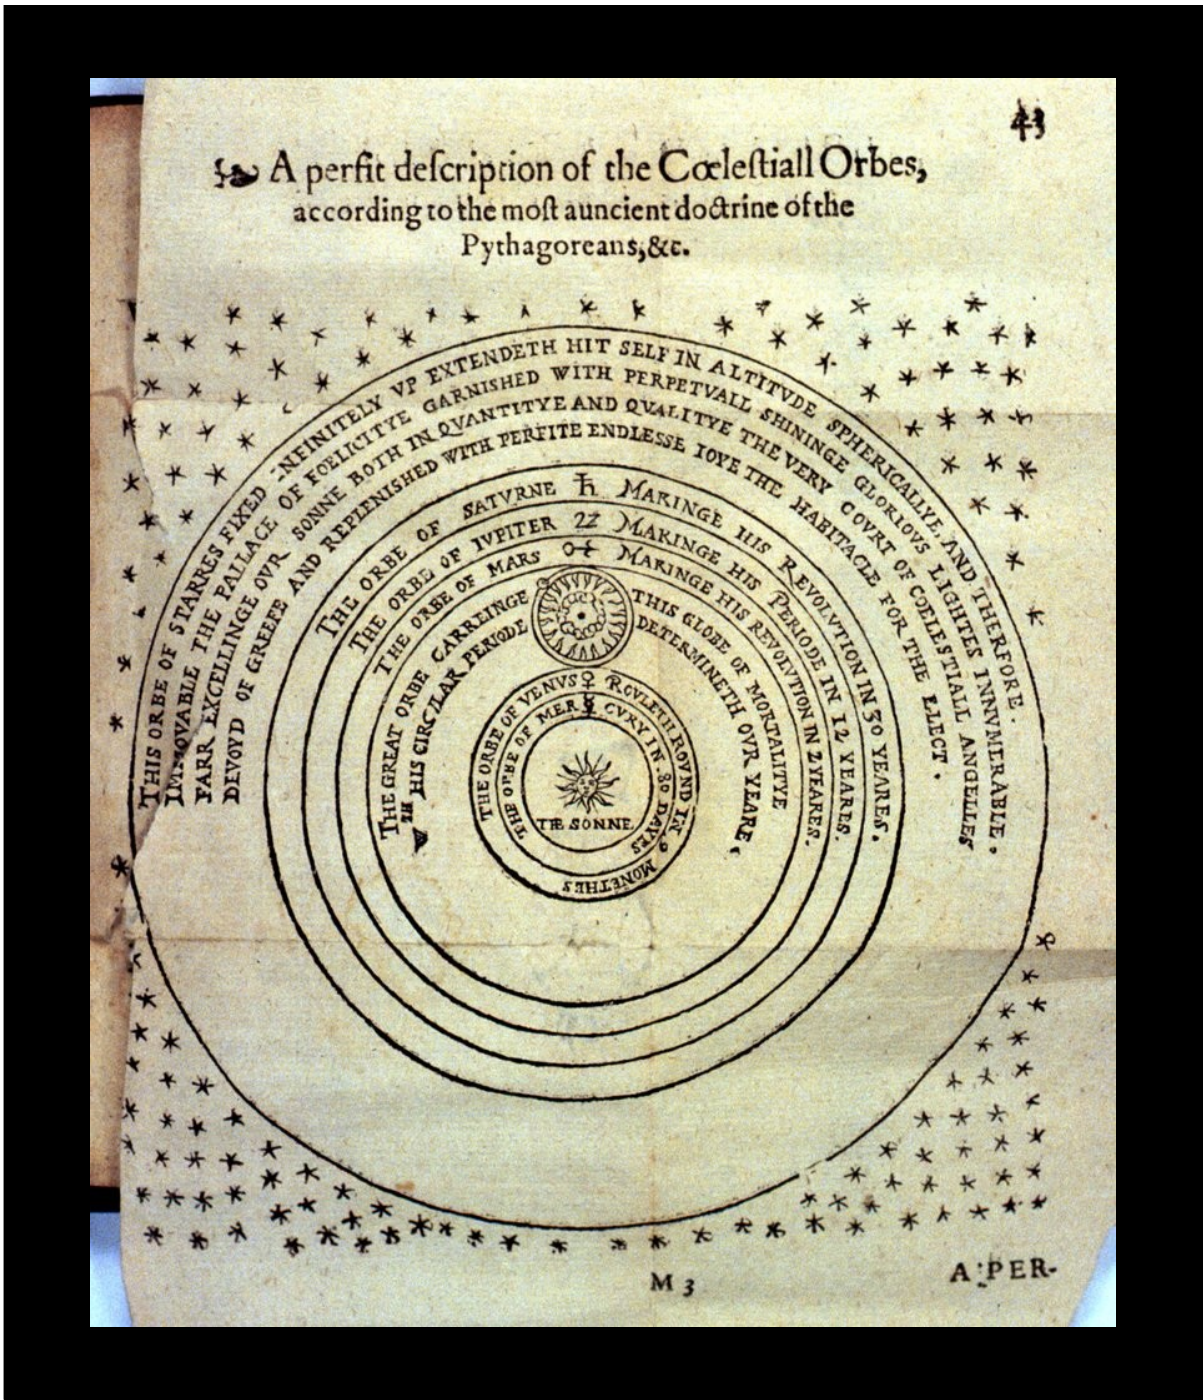 43
A perfit deſcription of the Cœleſtiall Orbes,
according to the moſt auncient doctrine of the
Pythagoreans, &c.
THIS ORBE OF STARRES FIXED INFINITELY VP EXTENDETH HIT SELF IN ALTITVDE SPHERICALLYE, AND THERFORE.
IMMOVABLE THE PALLACE OF FOELICITYE GARNISHED WITH PERPETVALL SHININGE GLORIOVS LIGHTES INNVMERABLE.
FARR EXCELLINGE OVR SONNE BOTH IN QVANTITYE AND QVALITYE THE VERY COVRT OF COELESTIALL ANGELLES
DEVOYD OF GREEFE AND REPLENISHED WITH PERFITE ENDLESSE IOYE THE HABITACLE FOR THE ELECT.
THE ORBE OF SATVRNE ♄ MAKINGE HIS REVOLVTION IN 30 YEARES.
THE ORBE OF IVPITER ♃ MAKINGE HIS PERIODE IN 12 YEARES.
THE ORBE OF MARS ♂ MAKINGE HIS REVOLVTION IN 2 YEARES.
THE GREAT ORBE CARREINGE THIS GLOBE OF MORTALITYE
IN HIS CIRCVLAR PERIODE DETERMINETH OVR YEARE.
THE ORBE OF VENVS ♀ ROVLETH ROVND IN 9 MONETHES
THE ORBE OF MER ☿ CVRY IN 80 DAYES
THE SONNE.
M 3
A PER-